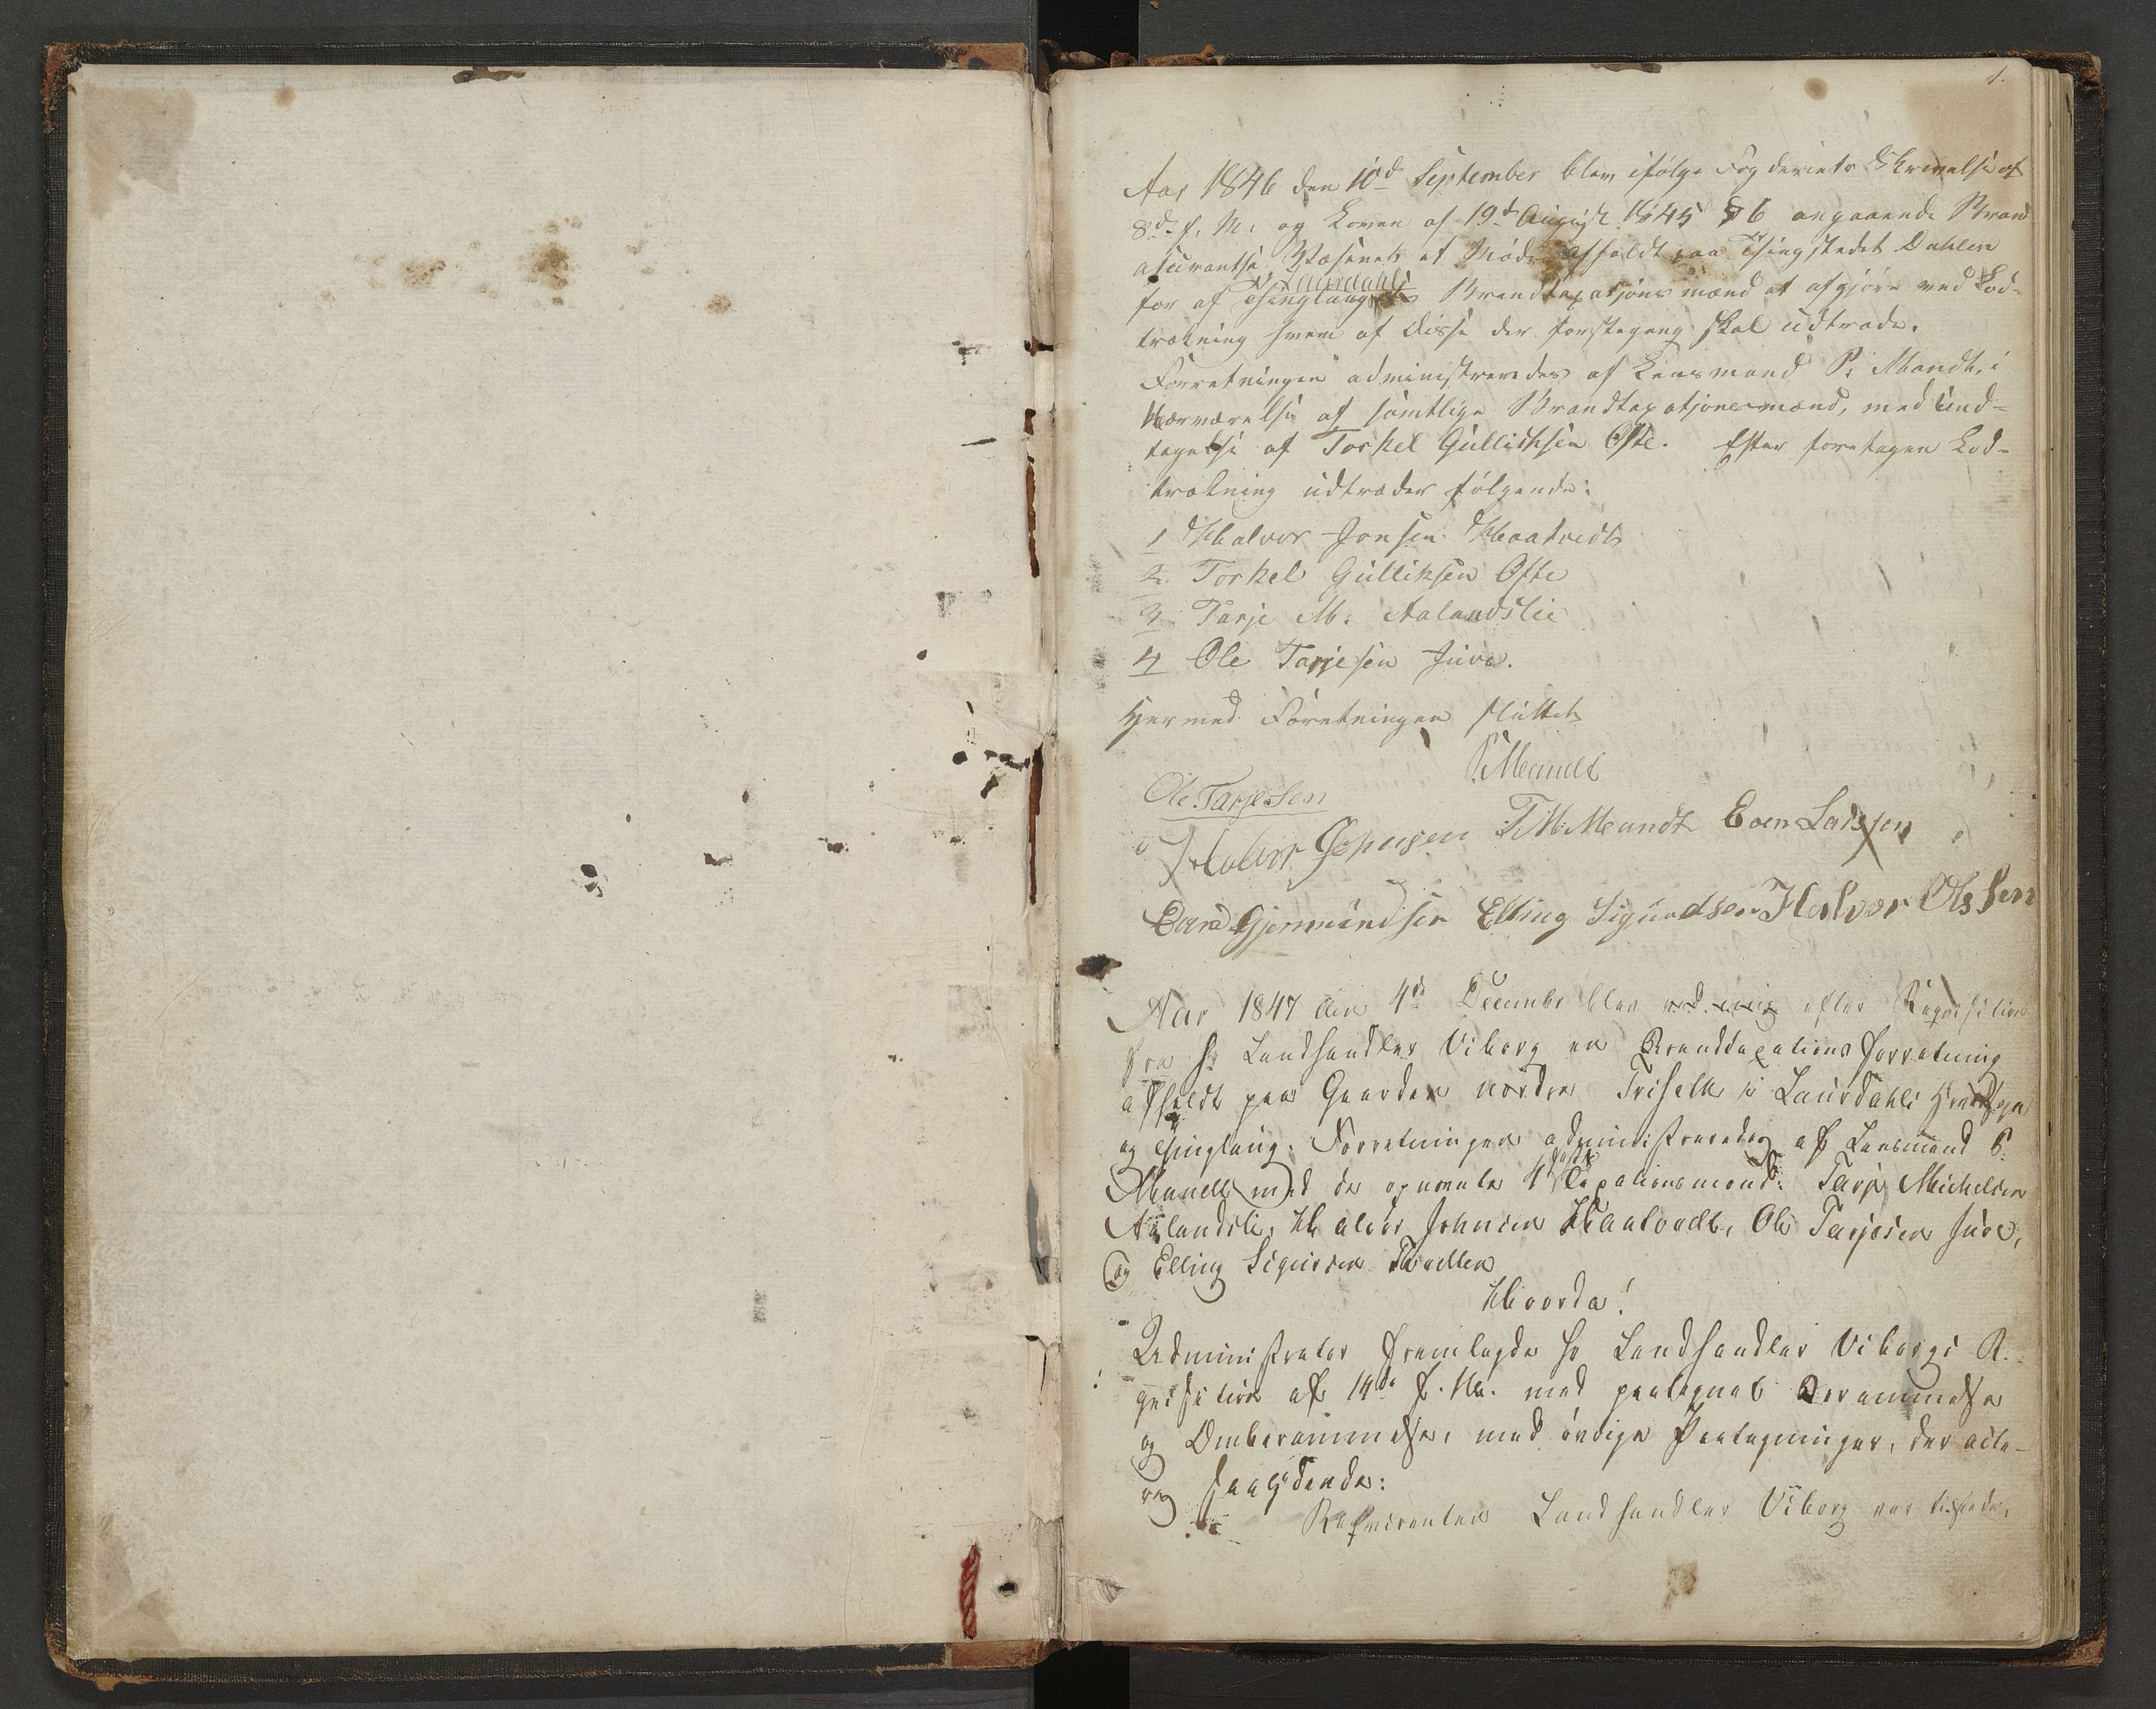 1.
Aar 1846 den 10d September blev ifølge Fogderiets Skrivelse af
8d f. M. og Loven af 19d August 1845 § 6 angaaende Brand
asurantse Væsenet et Møde afholdt paa Thingstedet Dahlen
for af Thinglaugets Laurdahls Brandtaxatjons mænd at afgjøre ved Lod-
trækning hvem af disse der førstegang skal udtræde.
Forretningen administreredes af Lensmand P. Mandt, i
Nærværelse af samtlige Brandtaxatjonsmænd, med Und-
tagelse af Torkel Gullichsen Ofte. Efter foretagen Lod-
trækning udtræder følgende:
1 Halvor Jonsen Haatvedt
2. Torkel Gulliksen Ofte
3 Tarje M. Aalandslie
4 Ole Tarjesen Juve.
Hermed Foretningen sluttet
P. Mandt
Ole Tarjesen
Halvor Johnsen T M Mandt Even Larssen
Gjermundsen Elling Sigurdsen Halvor Olssen
Aar 1847 den 4de Decembr blev ved mig efter Reqvisition
fra Hr Landhandler Viborg en Brandtaxationsforretning
afholdt paa Gaarden nordre Triset i Laurdahls Hovedsogn
og Thinglaug. Forretningen administreredes af Lensmand P.
Mandt med de opnævnte 4 faste Taxationsmænd: Tarje Michelsen
Aalandslie, Halvor Johnsen Haatvedt, Ole Tarjesen Juve,
og Elling Sigursen
Hvorda!
Administrator fremlagde Hr Landhandler Viborgs Re-
qvisition af 14de f. M. med paategnet Berammelse
og Omberammelse, med øvrige Paategninger, der acte-
res saalydende:
Reqvirenten Landhandler Viborg var tilstede,